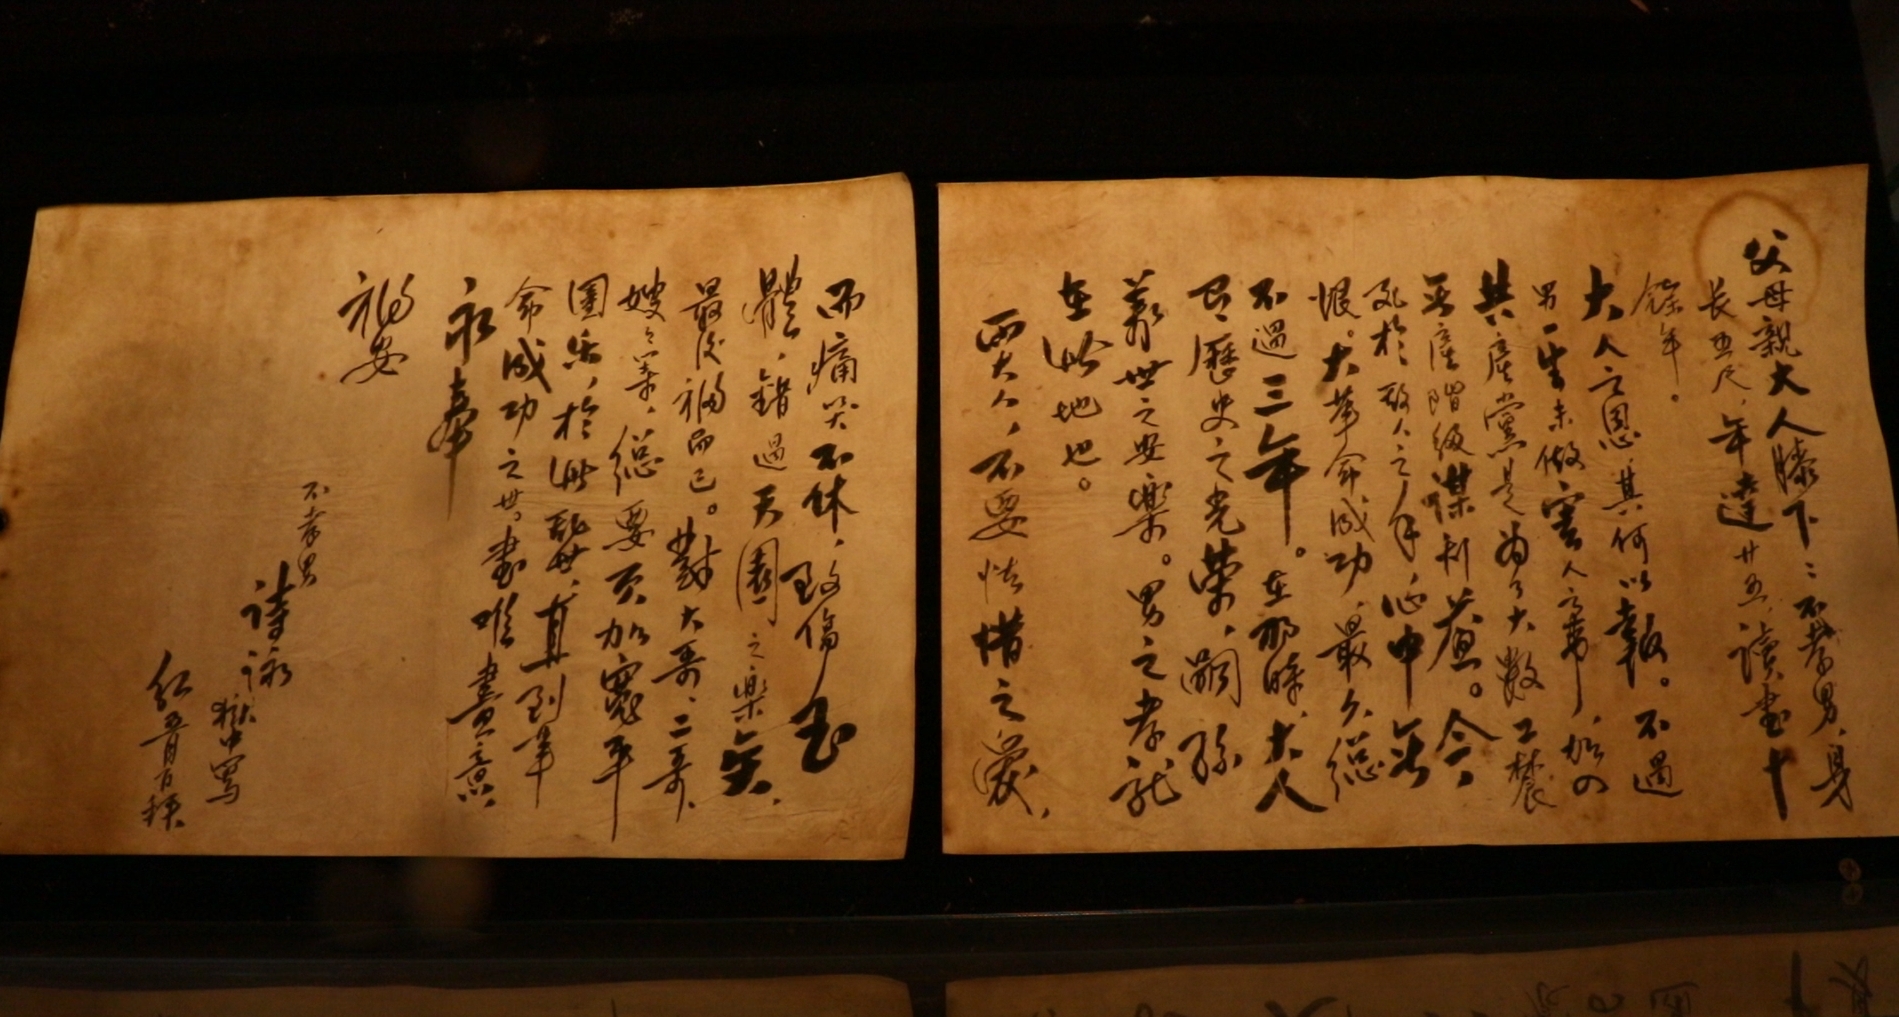 父母親大人膝下：不孝男，身
長五尺，年達廿五，讀書十
餘年。
大人之恩，其何以報。不過
男一生未做害人之事，加入
共產黨是為了大數工農
無產階級謀利益。今，
死於敵人之手，心中無
恨。大革命成功，最久總
不過三年。在那時，大人
有歷史之光榮，嗣孫
萬世之安樂。男之孝就
在此地也。
兩大人，不要惜之愛，
而痛哭不休，致傷玉
體，錯過天園之樂矣，
最後禍而已。對大哥、二哥、
嫂之等，總要更加寬平
團樂，於此程世，直到革
命成功之世。書難盡意，
永奉
福安
不孝男
詩詠
獄中寫
五月百拜